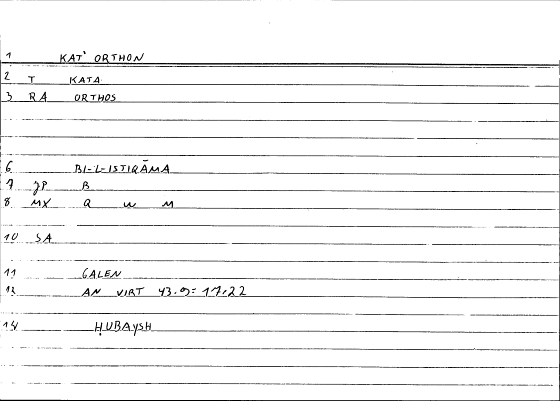 1 KAT' ORTHON
2 T KATA
3 RA ORTHOS
6 BI-L-ISTIQĀMA
7 JP B
8 MX Q W M
10 SA
11 GALEN
12 AN VIRT 43.9 = 17.22
14 ḤUBAYSH